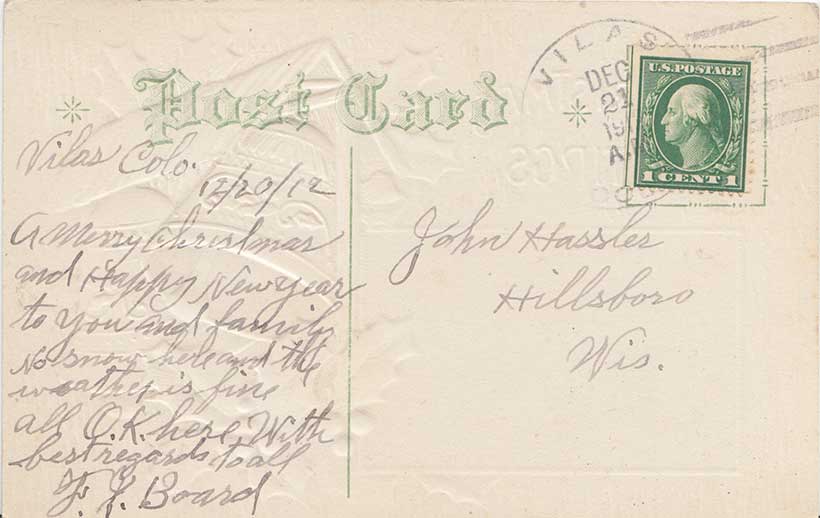 Post Card
VILAS
DEC
21
19
A.
U.S. POSTAGE
1 CENT 1
Vilas Colo.
12/20/12
A Merry Christmas
and Happy New year
to you and family
No snow here and the
weather is fine
all O.K. here With
best regards to all
F. L. Board
John Hassler
Hillsboro
Wis.